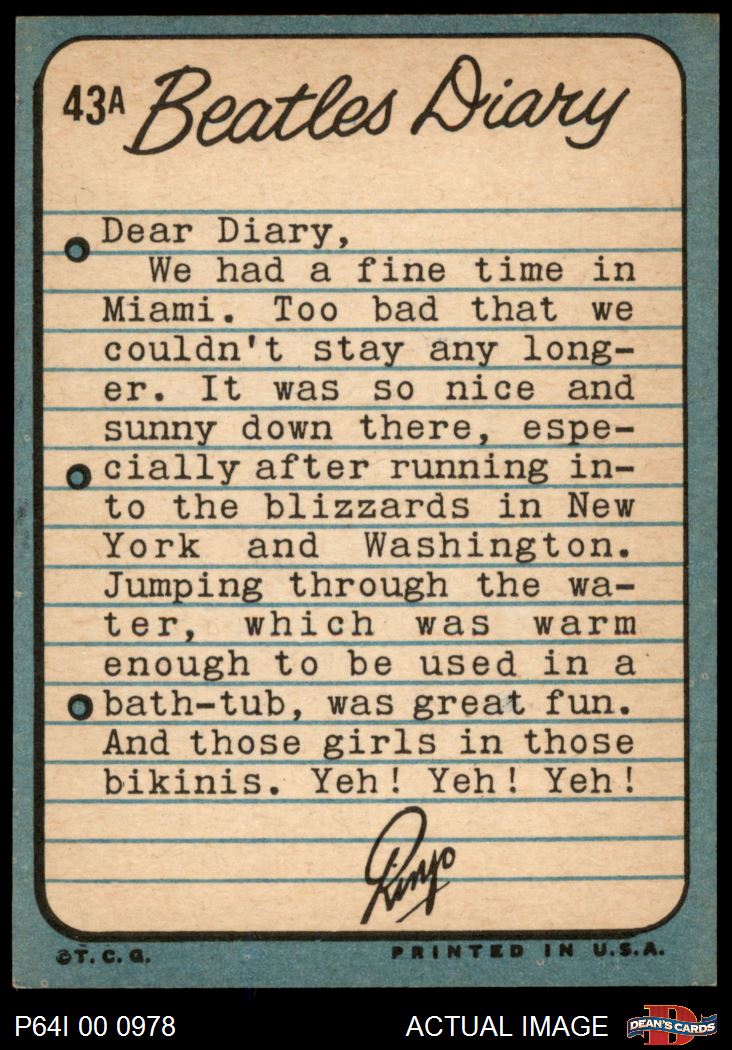 43A Beatles Diary
Dear Diary,
We had a fine time in
Miami. Too bad that we
couldn't stay any long-
er. It was so nice and
sunny down there, espe-
cially after running in-
to the blizzards in New
York and Washington.
Jumping through the wa-
ter, which was warm
enough to be used in a
bath-tub, was great fun.
And those girls in those
bikinis. Yeh! Yeh! Yeh!
Ringo
©T. C. G. PRINTED IN U.S.A.
P64I 00 0978 ACTUAL IMAGE D DEAN'S CARDS